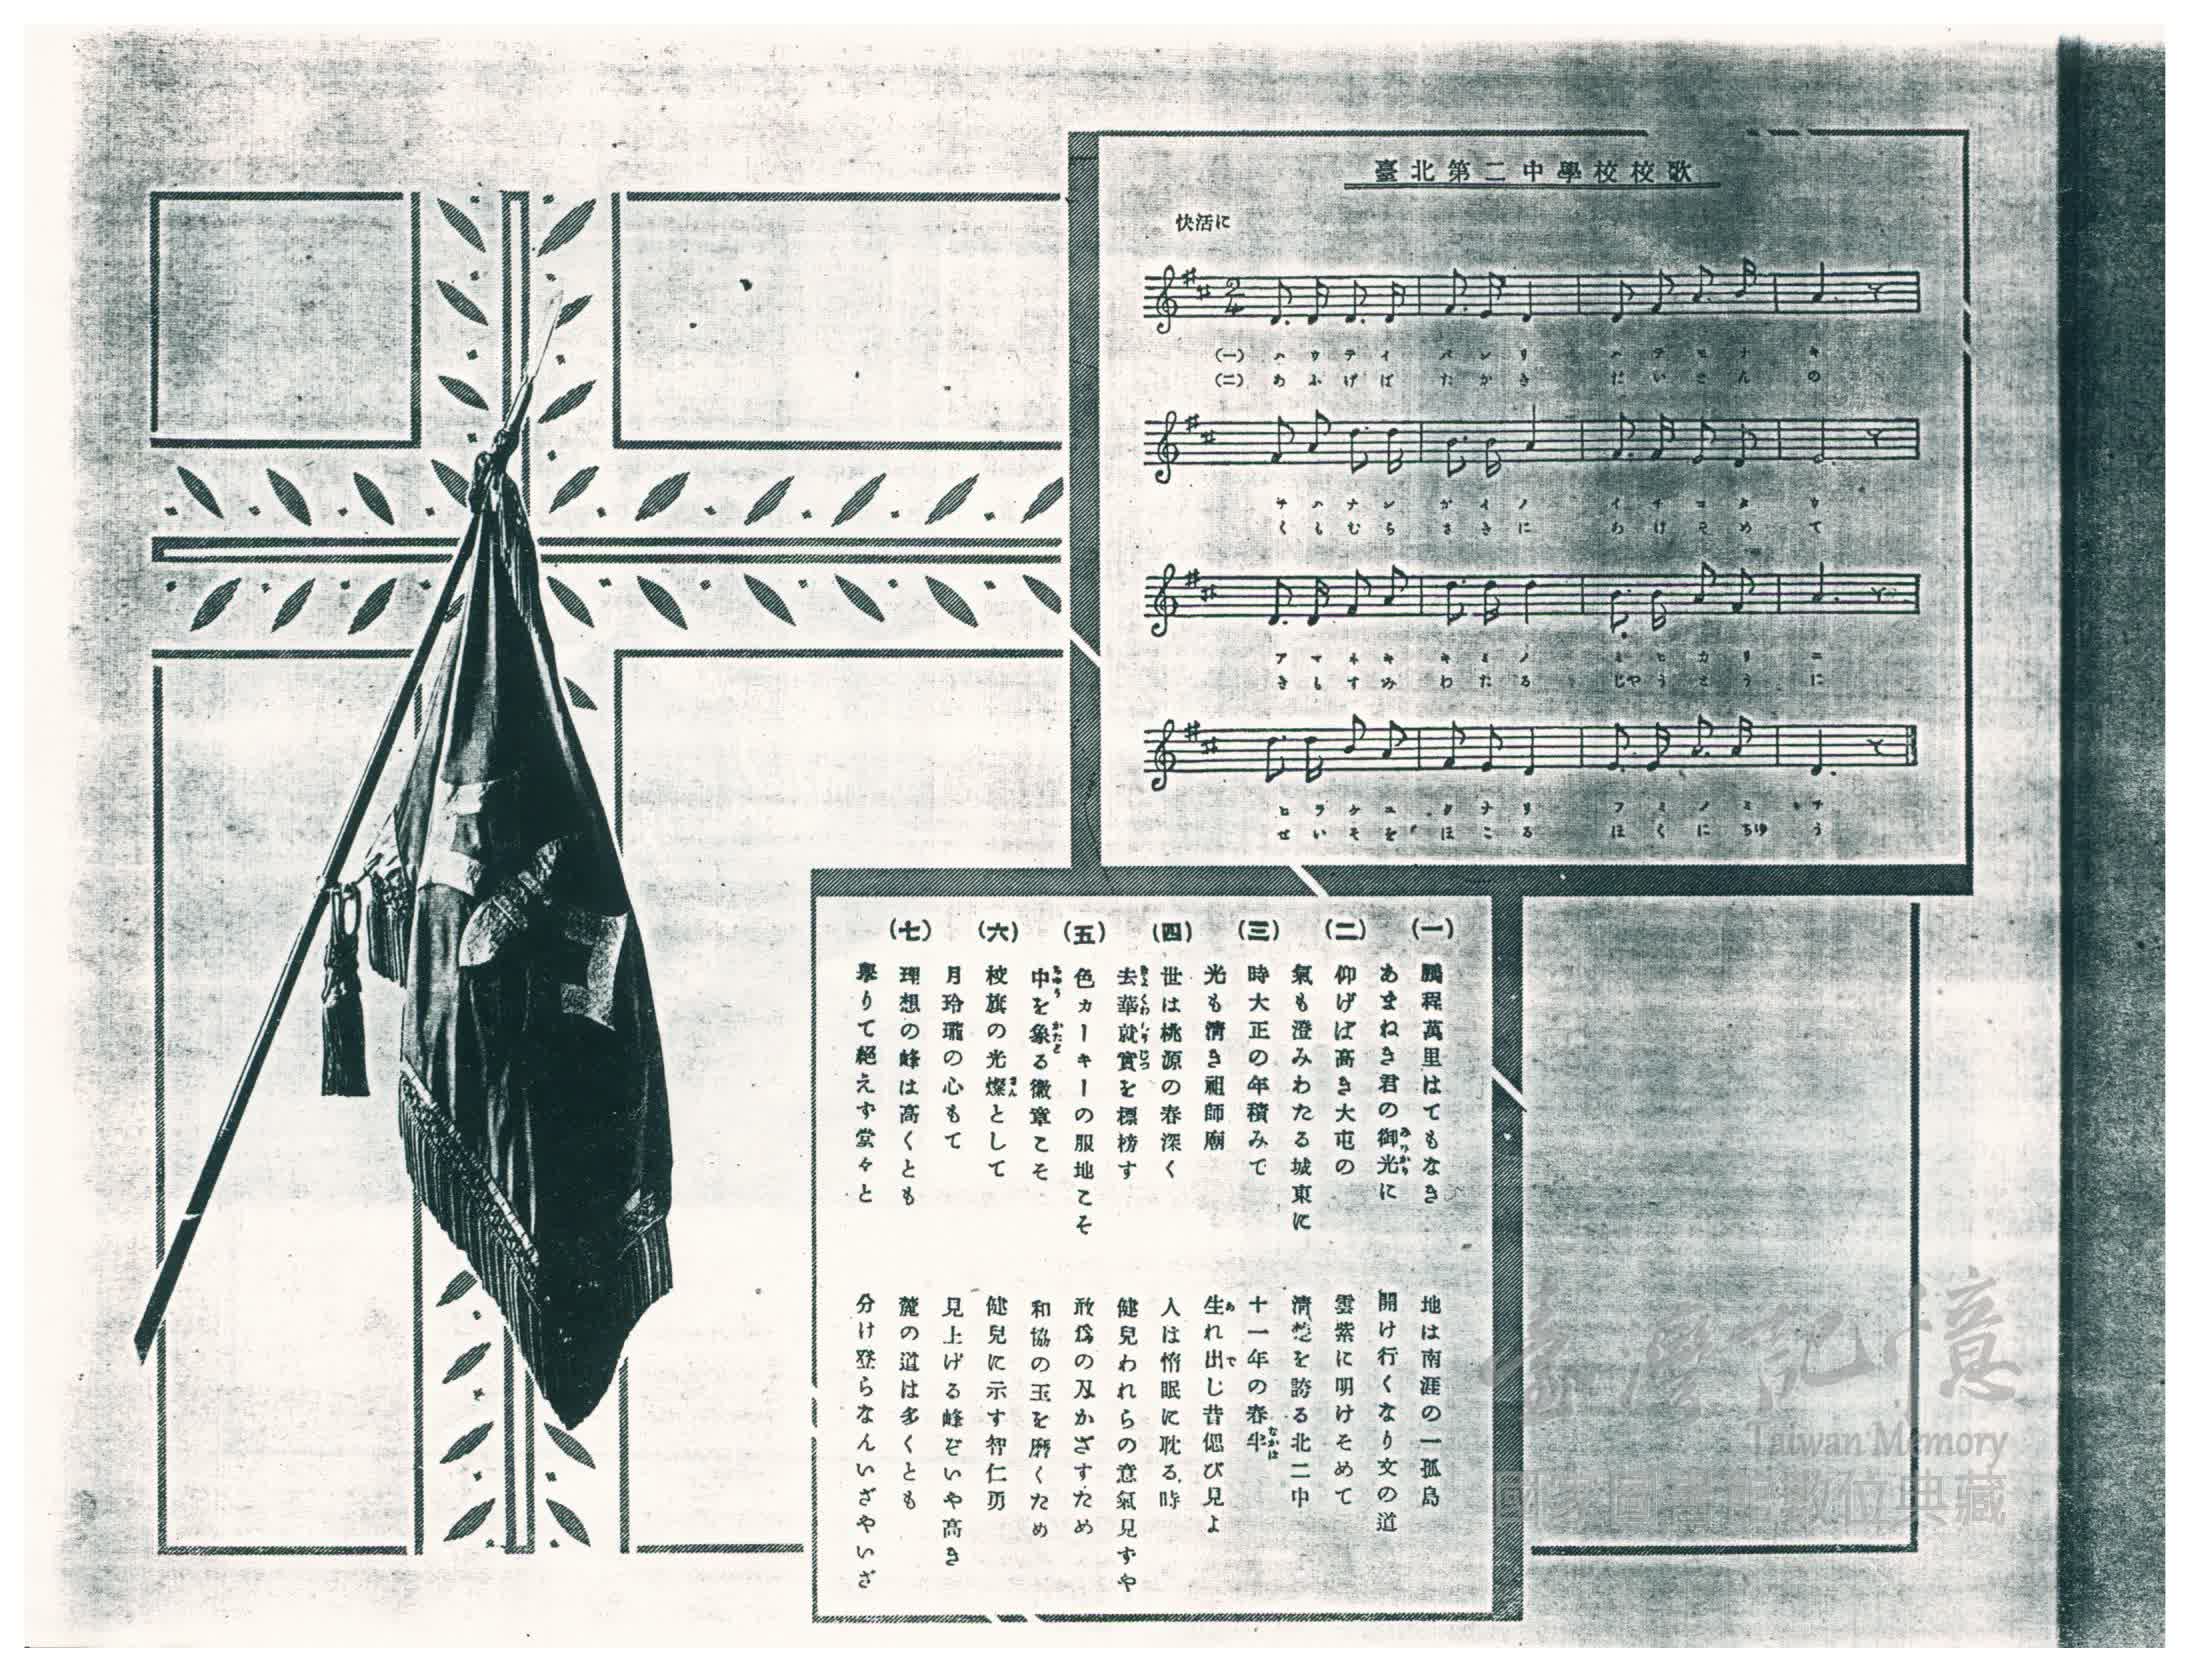 臺北第二中學校校歌
快活に
(一) ハウテイ バンリ ハテモナキ
(二) あふげば たかき だいとんの
チハナンガイノ イチコタウ
くもむらさきに あけそめて
アマネキ キミノ ミヒカリニ
きもすみ わたる じやうとうに
ヒラケユクナリ フミノミチ
せいそを ほこる ほくにちゆう
(一) 鵬程萬里はてもなき 地は南涯の一孤島
あまねき君の御光に 開け行くなり文の道
みひかり
(二) 仰げば高き大屯の 雲紫に明けそめて
氣も澄みわたる城東に 清楚を誇る北二中
(三) 時大正の年積みて 十一年の春半
なかば
光も清き祖師廟 生れ出じ昔偲び見よ
あ で
(四) 世は桃源の春深く 人は惰眠に耽る時
去華就實を標榜す 健兒われらの意氣見ずや
きよくわしうじつ
(五) 色カーキーの服地こそ 敢爲の刄かざすため
中を象る徽章こそ 和協の玉を磨くため
ちゆう かたど
(六) 校旗の光燦として 健兒に示す智仁勇
さん
月玲瓏の心もて 見上げる峰ぞいや高き
(七) 理想の峰は高くとも 麓の道は多くとも
擧りて絕えず堂々と 分け登らなんいざやいざ
臺灣記憶
Taiwan Memory
國家圖書館數位典藏